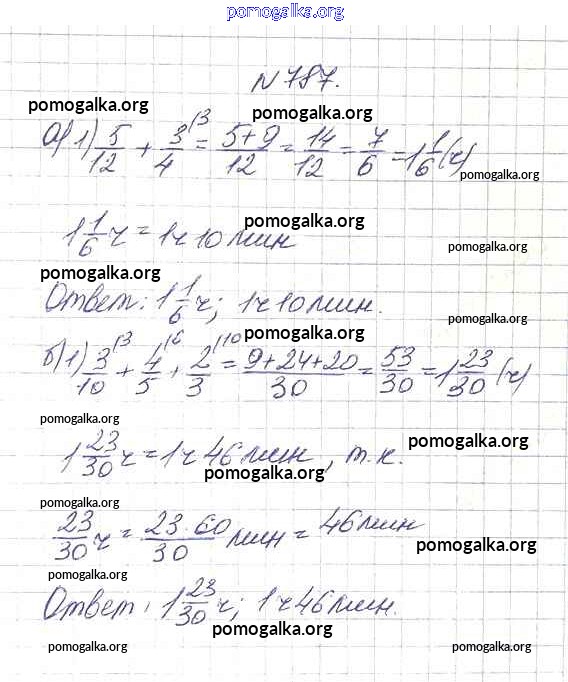 pomogalka.org
N 787.
pomogalka.org pomogalka.org
а) 1) 5/12 + 3/4 (3 = (5+9)/12 = 14/12 = 7/6 = 1 1/6 (ч)
pomogalka.org
pomogalka.org
1 1/6 ч = 1 ч 10 мин
pomogalka.org
pomogalka.org
Ответ: 1 1/6 ч; 1 ч 10 мин.
pomogalka.org
pomogalka.org
б) 1) 3/10 (3 + 4/5 (6 + 2/3 (10 = (9+24+20)/30 = 53/30 = 1 23/30 (ч)
pomogalka.org
pomogalka.org
1 23/30 ч = 1 ч 46 мин, т.к.
pomogalka.org
pomogalka.org
pomogalka.org
23/30 ч = (23·60)/30 мин = 46 мин
pomogalka.org
pomogalka.org
Ответ: 1 23/30 ч; 1 ч 46 мин.
pomogalka.org
pomogalka.org pomogalka.org